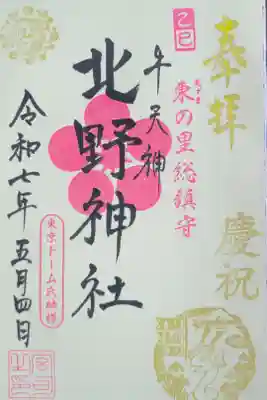 奉拝
慶祝
乙巳
東の里総鎮守
牛天神
北野神社
令和七年
五月四日
東京ドーム氏神様